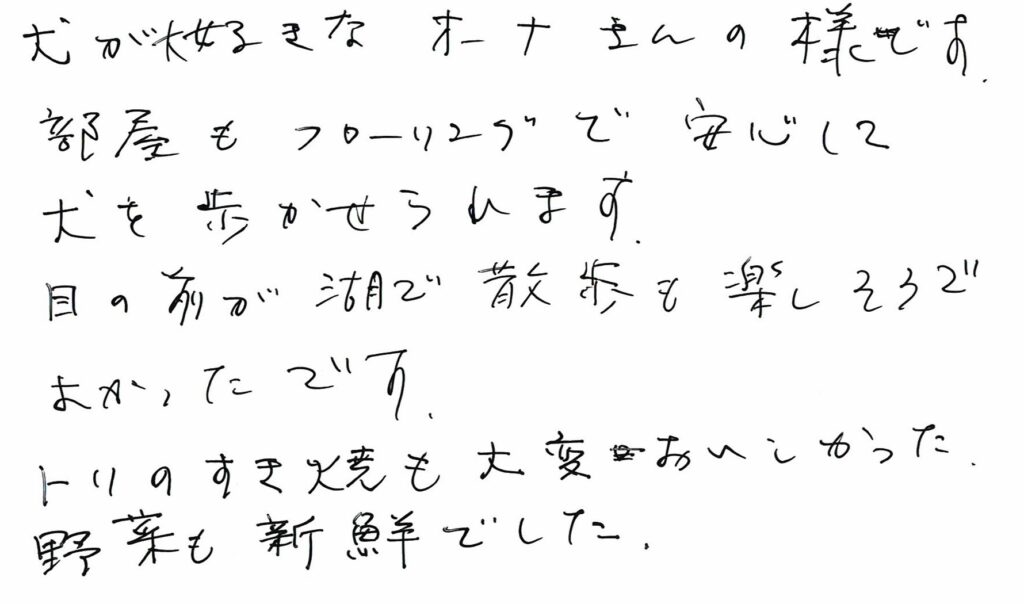 犬が大好きなオーナさんの様です.
部屋もフローリングで安心して
犬を歩かせられます.
目の前が湖で散歩も楽しそうで
よかったです.
トリのすき焼も大変おいしかった.
野菜も新鮮でした.